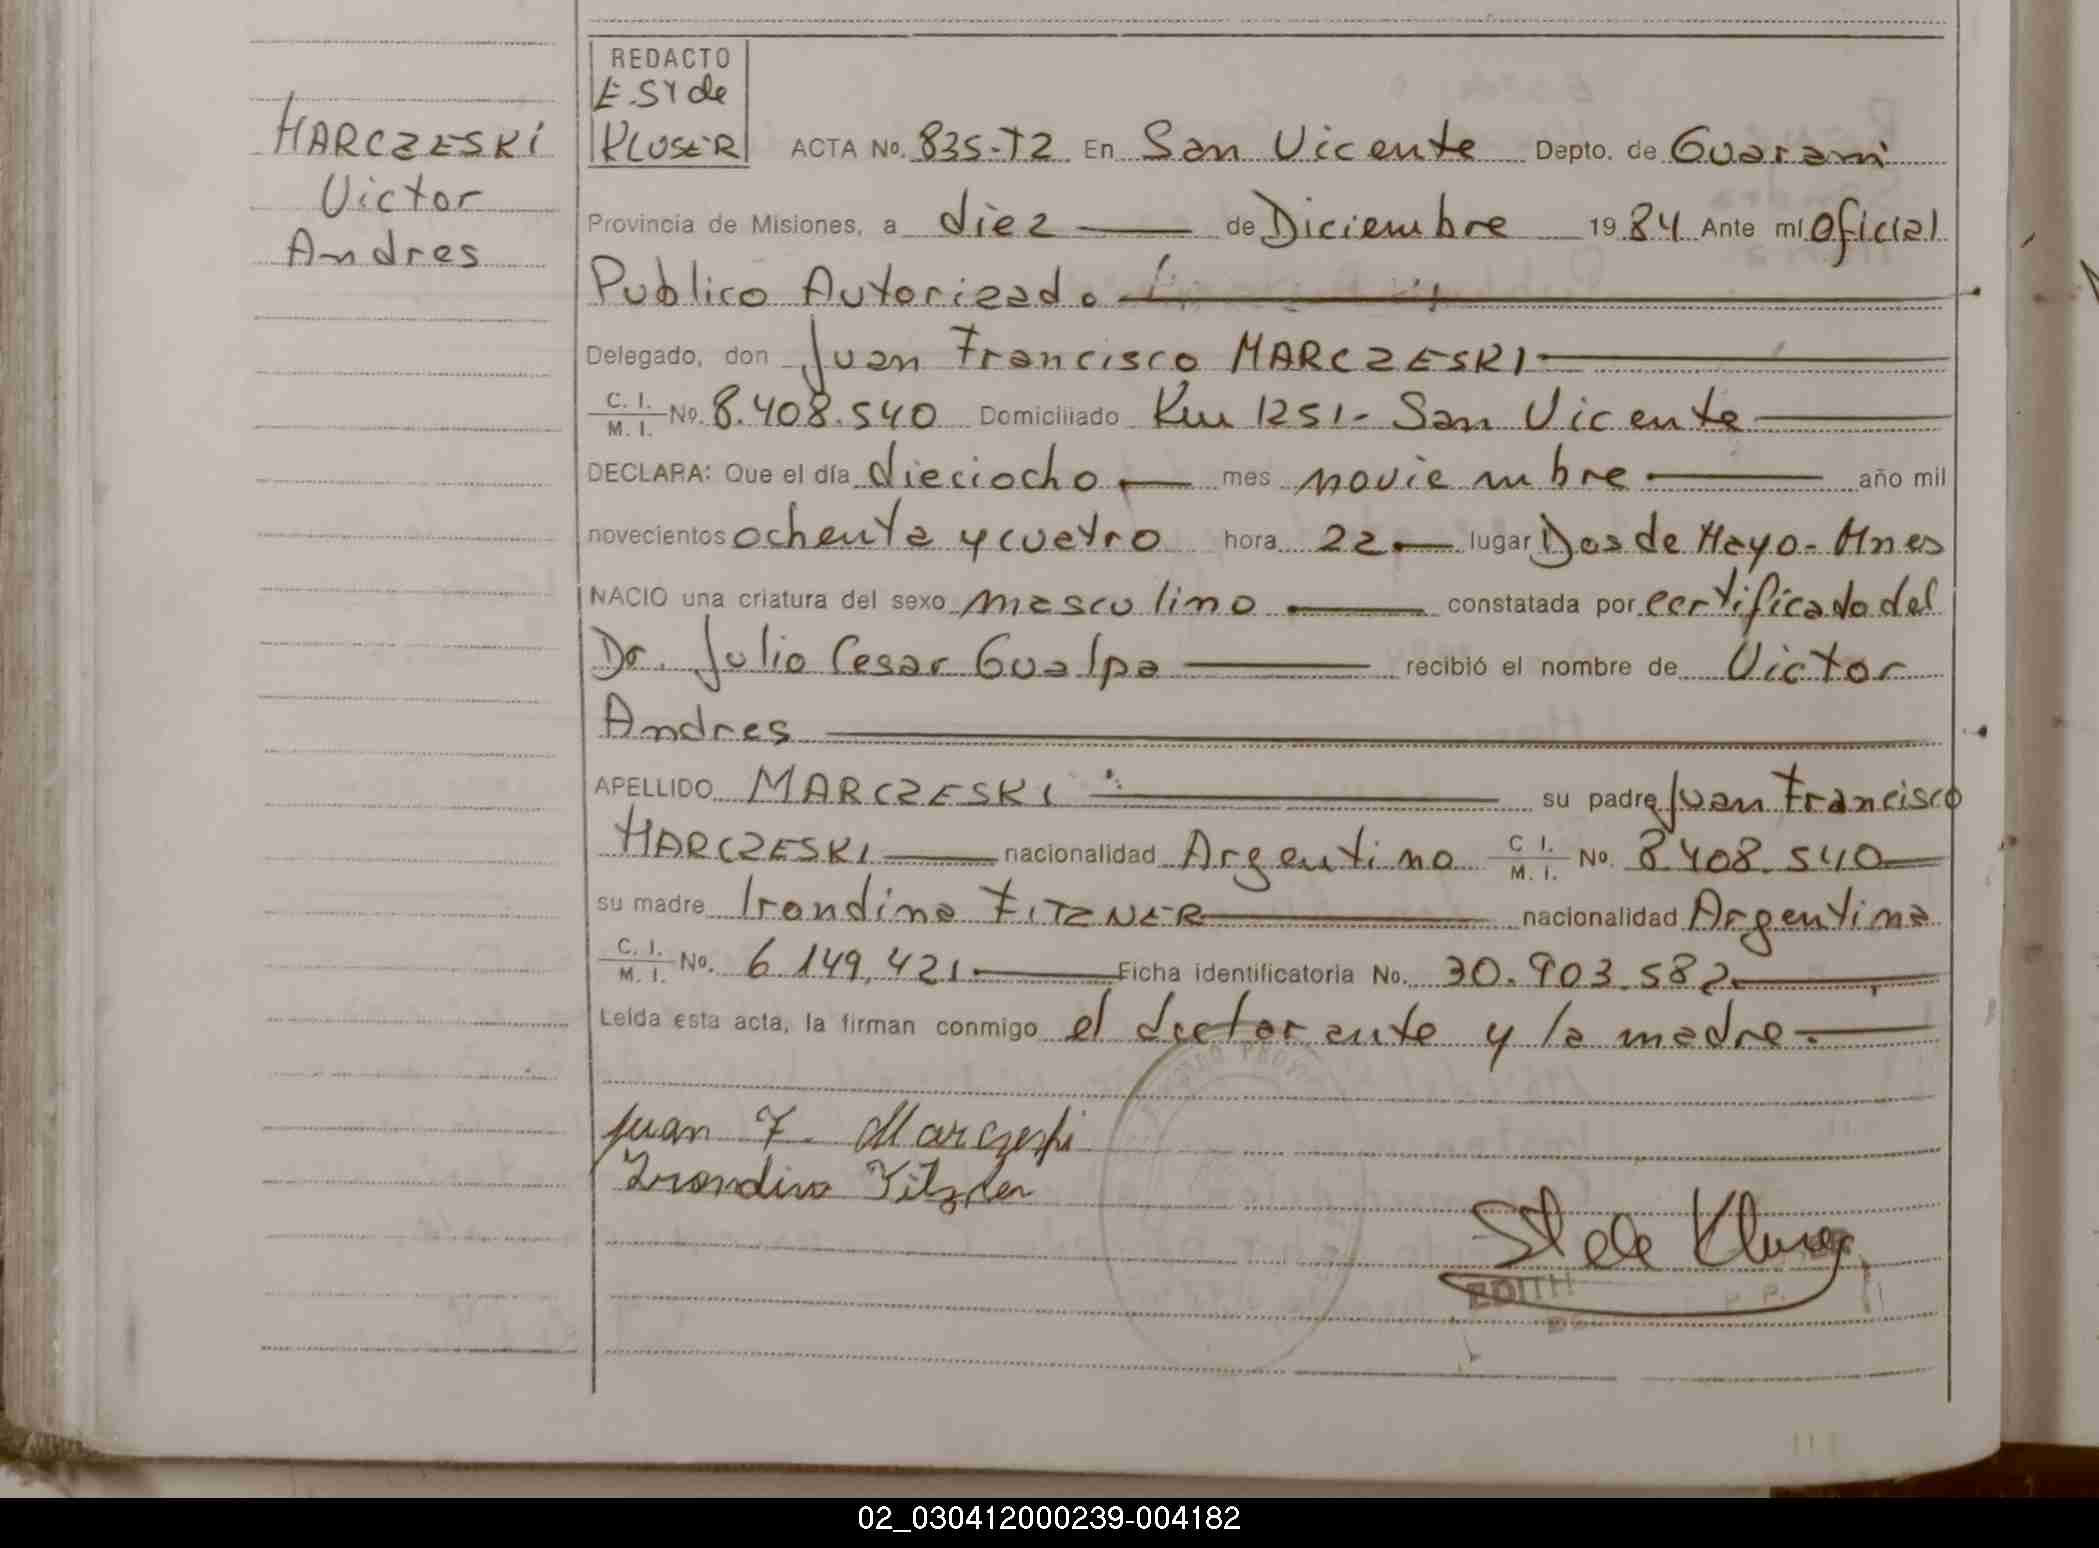 MARCZESKI
Victor
Andres
REDACTO
E. ST de
KLUSER
ACTA No. 835-T2 En San Vicente Depto. de Guarani
Provincia de Misiones, a diez de Diciembre 1984 Ante mí Oficial
Publico Autorizado
Delegado, don Juan Francisco MARCZESKI
C. I. / M. I. No. 8.408.540 Domiciliado Km 1251- San Vicente
DECLARA: Que el día dieciocho mes noviembre año mil
novecientos ochenta y cuatro hora 22 lugar Dos de Mayo - Mnes
NACIO una criatura del sexo masculino constatada por certificado del
Dr. Julio Cesar Gualpa recibió el nombre de Victor
Andres
APELLIDO MARCZESKI su padre Juan Francisco
MARCZESKI nacionalidad Argentino C. I. / M. I. No. 8.408.540
su madre Irondina FITZNER nacionalidad Argentina
C. I. / M. I. No. 6.149.421 Ficha identificatoria No. 30.903.582
Leída esta acta, la firman conmigo el declarante y la madre.
Juan F. Marczeski
Irondina Fitzner
St de Kluser
EDITH
02_030412000239-004182